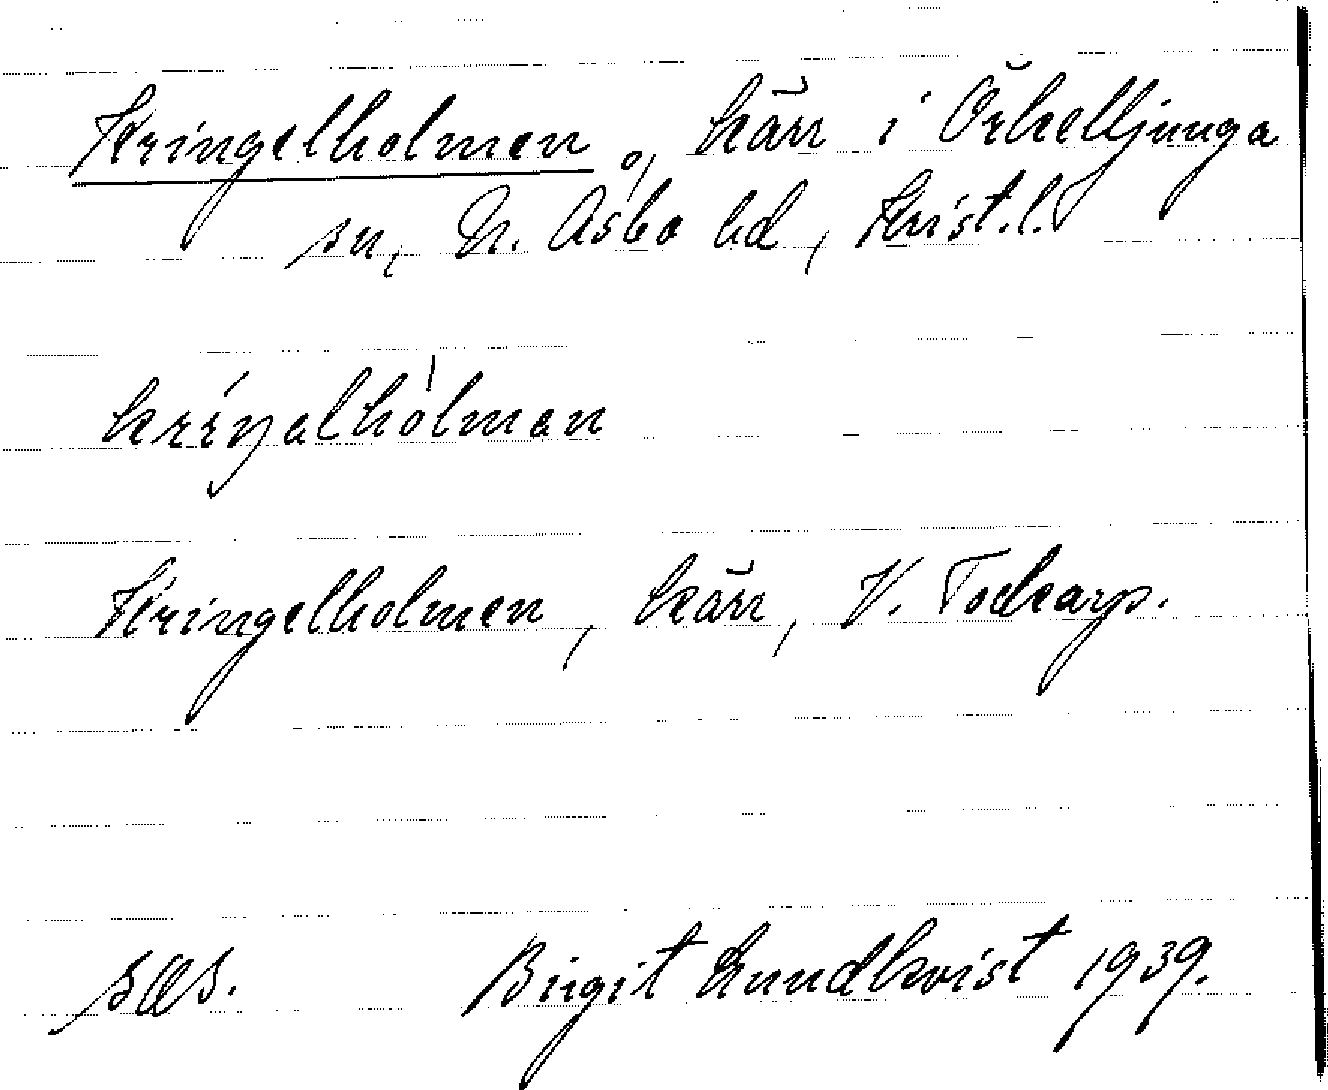 Kringelholmen, kärr i Örkelljunga
sn, N. Åsbo hd, Krist. l.
kriŋəlhòlmən
Kringelholmen, kärr, V. Tockarp.
Birgit Lundkvist 1939.